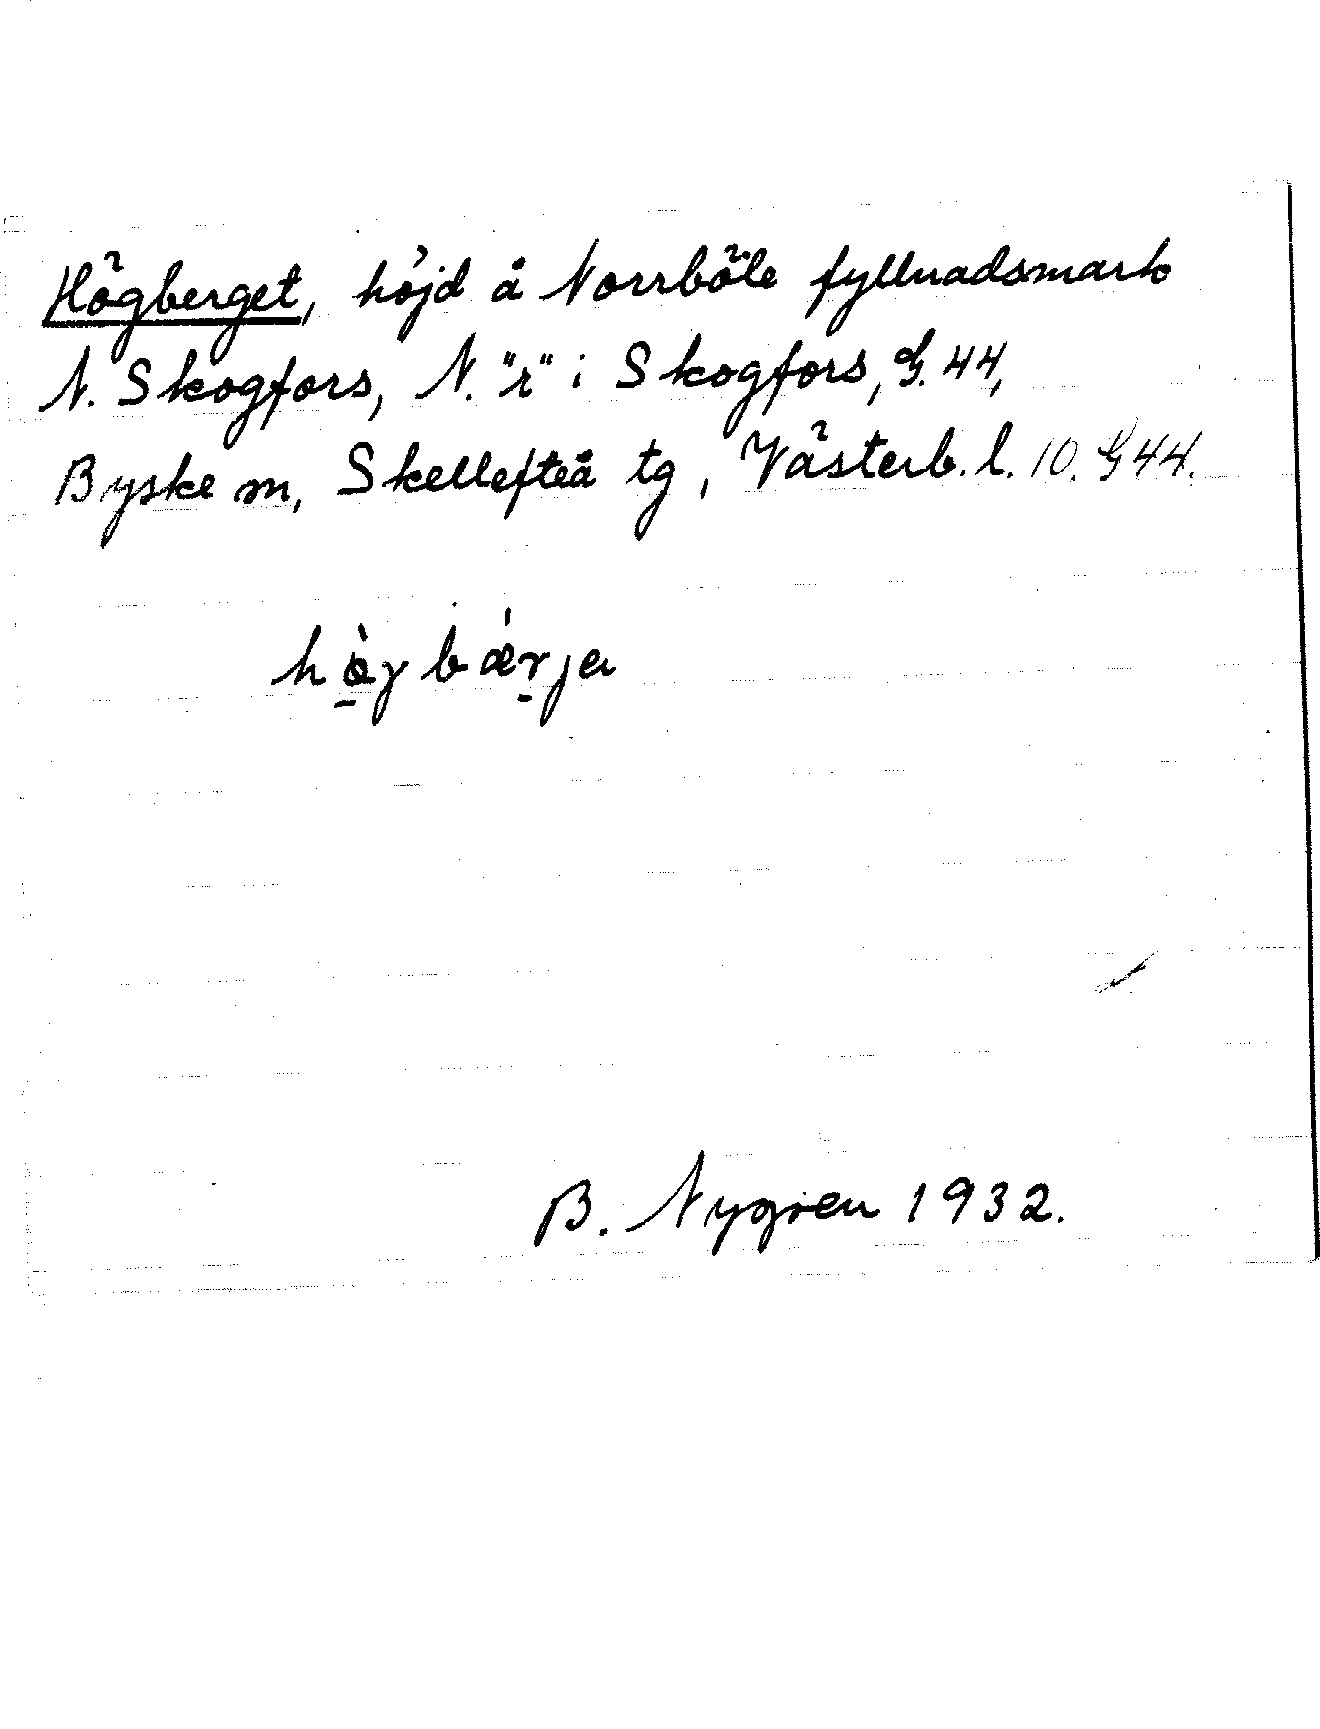 Högberget, höjd å Norrböle fyllnadsmark
N. Skogfors, N. "r" i Skogfors, G. 44,
Byske sn, Skellefteå tg, Västerb. l. 10. G 44.
hö̀gbǽrja
B. Nygren 1932.